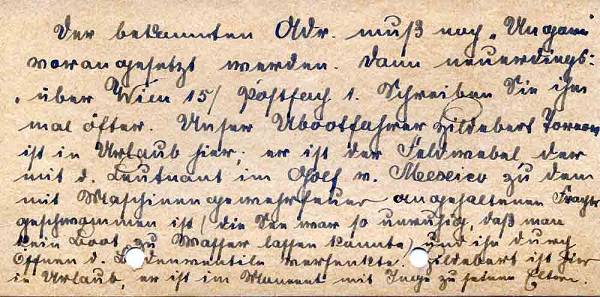 Der bekannten Adr. muß noch „Ungarn
vorangesetzt werden. Dann neuerdings:
„über Wien 15/ Postfach 1. Schreiben Sie ihm
mal öfter. Unser Ubootfahrer Hildebert
ist in Urlaub hier; er ist der Feldwebel der
mit d. Leutnant im Golf v. Mexico zu dem
mit Maschinengewehrfeuer angehaltenen Frachter
geschwommen ist/ die See war so unruhig, daß man
kein Boot zu Wasser lassen konnte/ und ihn durch
Öffnen d. Bodenventile versenkte. Hildebert ist hier
in Urlaub, er ist im Moment mit Inge zu seinen Eltern.